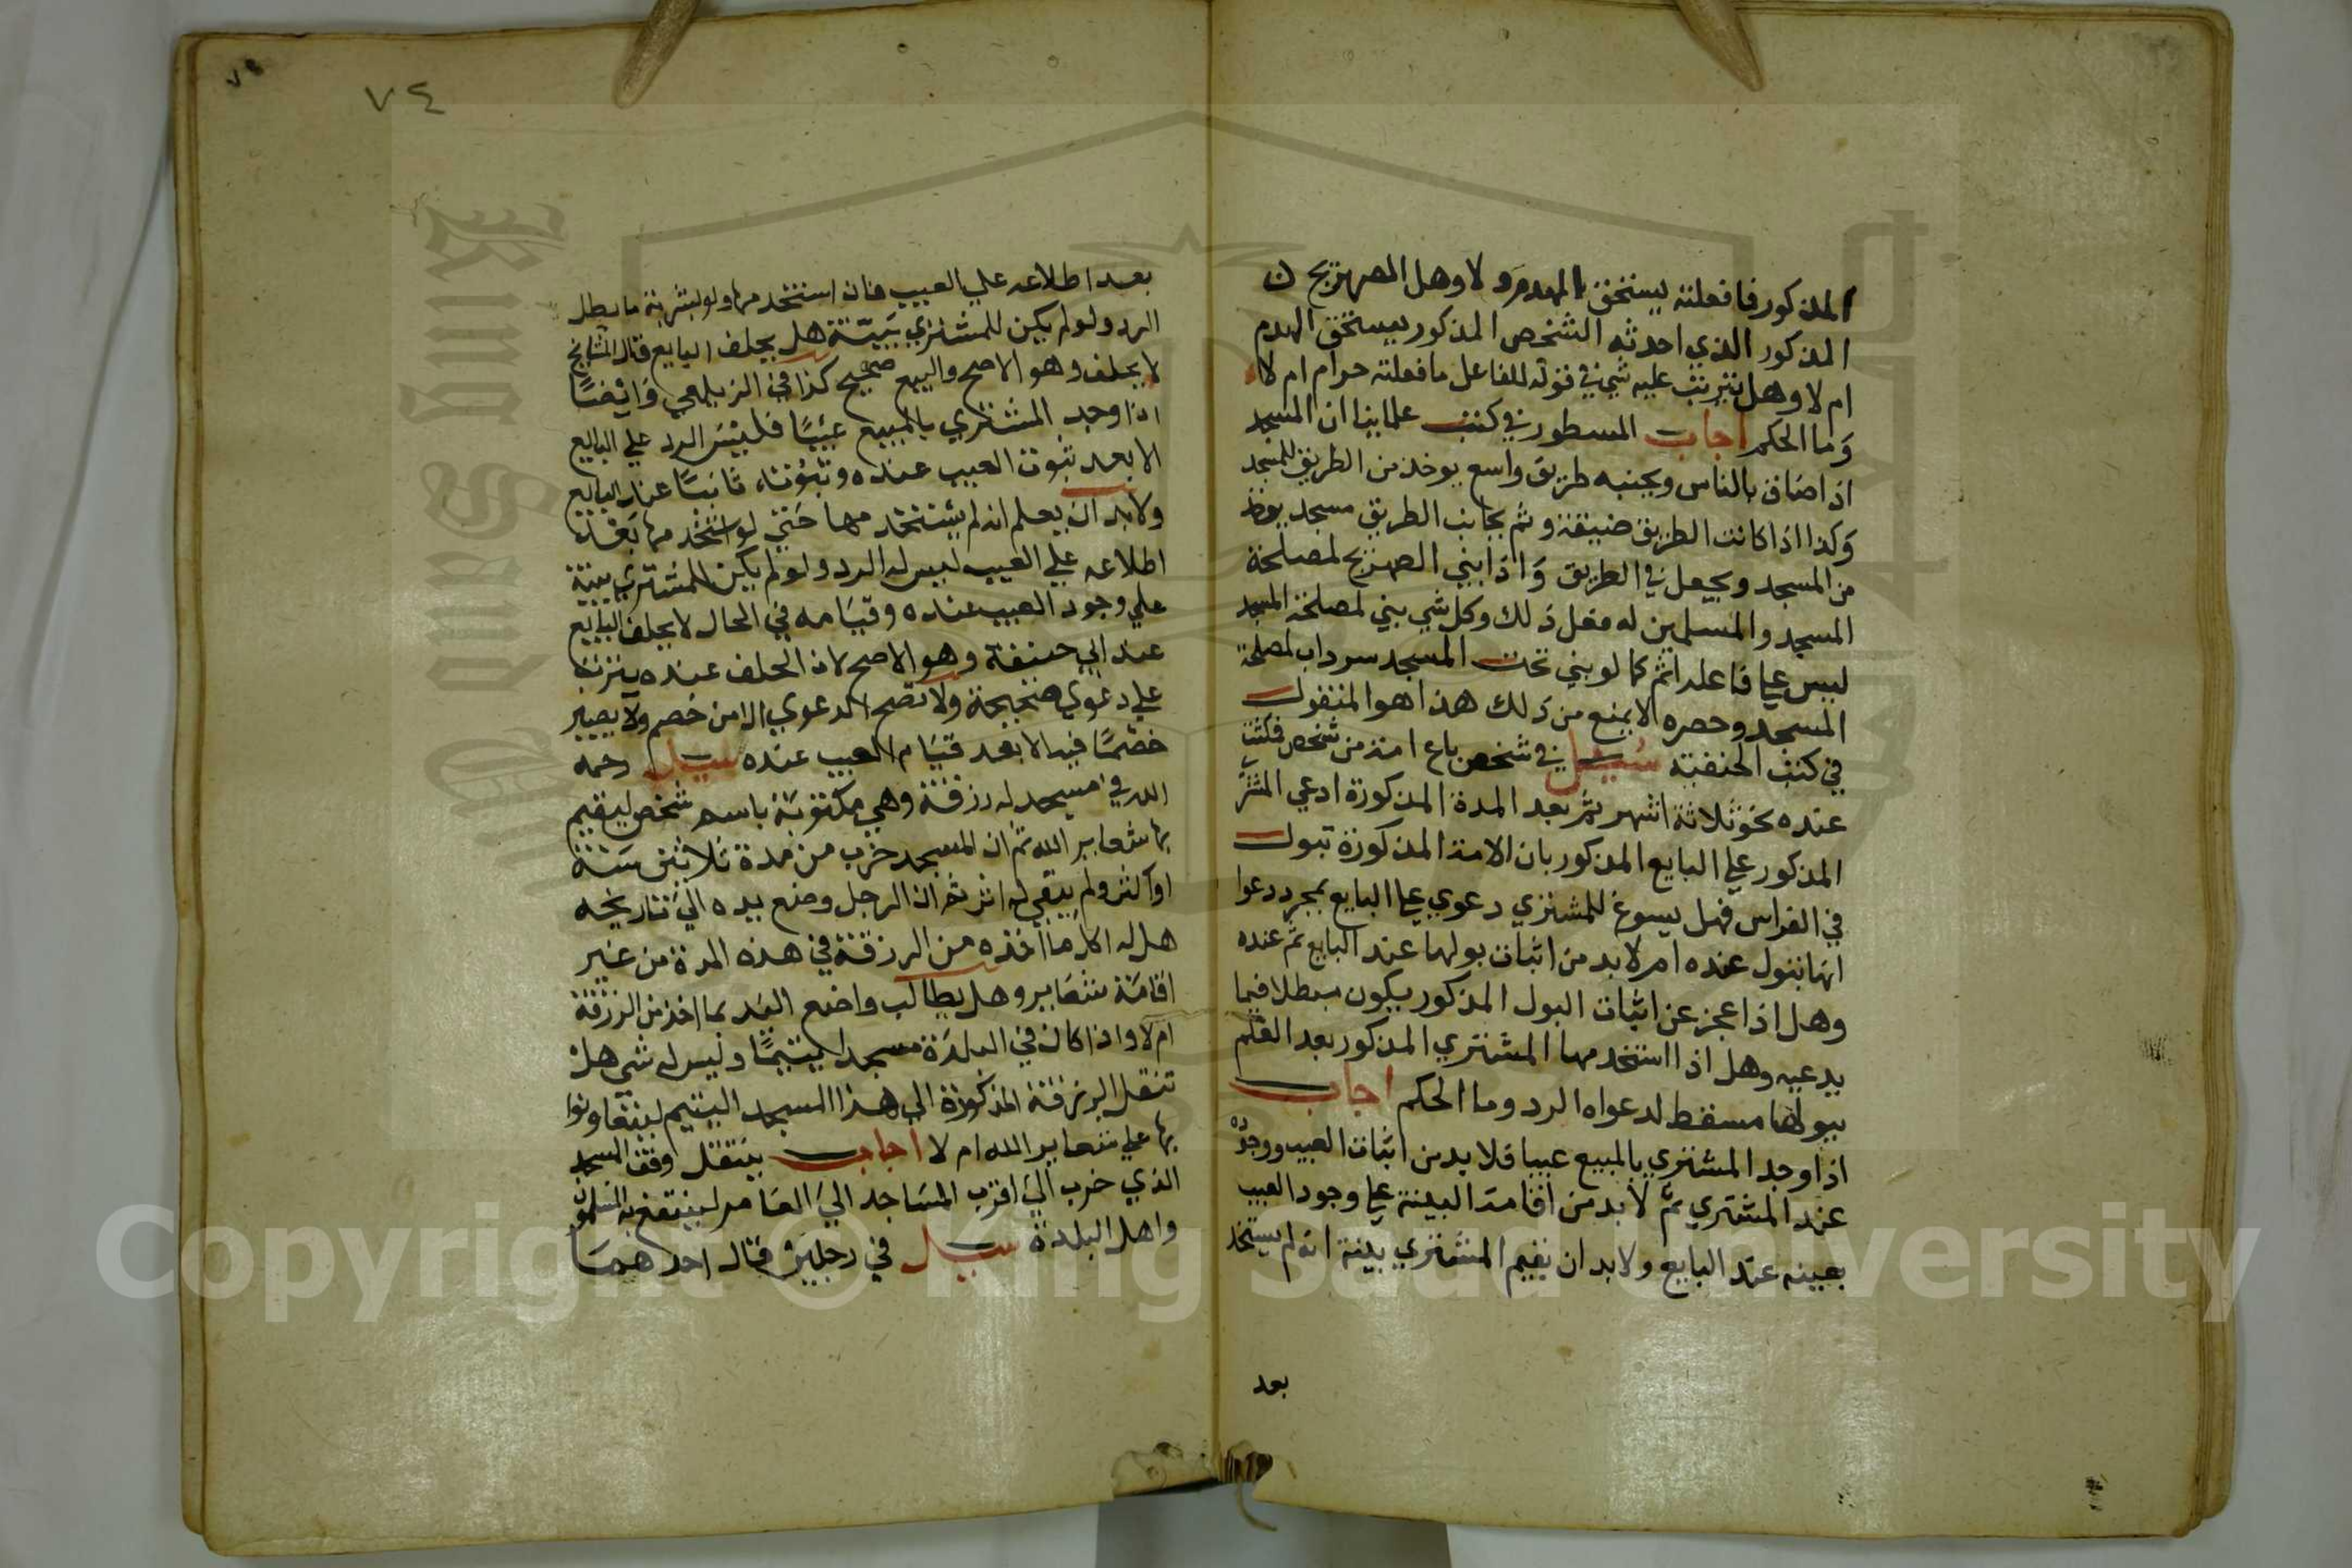 المذكور فافعلته يستحق الهدم ولا وهل الصهريج ن
المذكور الذي احدثه الشخص المذكور يستحق الهدم
ام لا وهل يترتب عليه شي في قوله للفاعل ما فعلته حرام ام لا
وما الحكم اجاب المسطور في كتب علماينا ان المسجد
اذا ضاق بالناس وبجنبه طريق واسع يوخذ من الطريق للمسجد
وكذا اذا كانت الطريق ضيقة وثم بجانب الطريق مسجد يوخذ
من المسجد ويجعل في الطريق واذا بني الصهريج لمصلحة
المسجد والمسلمين له فعل ذلك وكل شي بني لمصلحة المسجد
ليس علي فاعله اثم كما لو بني تحت المسجد سرداب لمصلحة
المسجد وحصره لا يمنع من ذلك هذا هو المنقول
في كتب الحنفية سئل في شخص باع امة من شخص فمكثت
عنده نحو ثلاثة اشهر ثم بعد المدة المذكورة ادعي المشتر
المذكور علي البايع المذكور بان الامة المذكورة تبول
في الفراس فهل يسوغ للمشتري دعوي علي البايع بمجرد دعوا
انها تبول عنده ام لا بد من اثبات بولها عند البايع ثم عنده
وهل اذا عجز عن اثبات البول المذكور يكون مبطلا فيما
يدعيه وهل اذا استخدمها المشتري المذكور بعد العلم
ببولها مسقط لدعواه الرد وما الحكم اجاب
اذا وجد المشتري بالمبيع عيبا فلا بد من اثبات العيب ووجوده
عند المشتري ثم لا بد من اقامة البينة علي وجود العيب
بعينه عند البايع ولا بد ان يقيم المشتري بينة انه لم يستخد
بعد
٧٤
بعد اطلاعه علي العيب فان استخدمها ولو بشربة ما بطل
الرد ولو لم يكن للمشتري بينة هل يحلف البايع قال المشايخ
لا يحلف وهو الاصح والبيع صحيح كذا في الزيلعي وايضا
اذا وجد المشتري بالمبيع عيبا فليس الرد علي البايع
الا بعد ثبوت العيب عنده وثبوته ثابتا عند البايع
ولا بد ان يعلم انه لم يستخدمها حتي لو استخدمها بعد
اطلاعه علي العيب ليس له الرد ولو لم يكن للمشتري بينة
علي وجود العيب عنده وقيامه في الحال لا يحلف البايع
عند ابي حنيفة وهو الاصح لان الحلف عنده يترتب
علي دعوي صحيحة ولا تصح الدعوي الا من خصم ولا يصير
خصما فيه الا بعد قيام العيب عنده سيل رحمه
الله في مسجد له رزقة وهي مكتوبة باسم شخص ليقيم
بها شعاير الله ثم ان المسجد خرب من مدة ثلاثين سنة
او اكثر ولم يبقي له اثر ثم ان الرجل وضع يده الي تاريخه
هل له اكل ما اخذه من الرزقة في هذه المدة من غير
اقامة شعاير وهل يطالب واضع اليد بما اخذ من الرزقة
ام لا واذا كان في البلدة مسجدا يتيما وليس له شي هل
تنقل الرزقة المذكورة الي هذا المسجد اليتيم ليتقاووا
بها علي شعاير الله ام لا اجاب ينتقل وقف المسجد
الذي خرب الي اقرب المساجد الي العامر لينتفع به المسلمون
واهل البلدة سيل في رجلين قال احدهما
Copyright © King Saud University
King Saud University